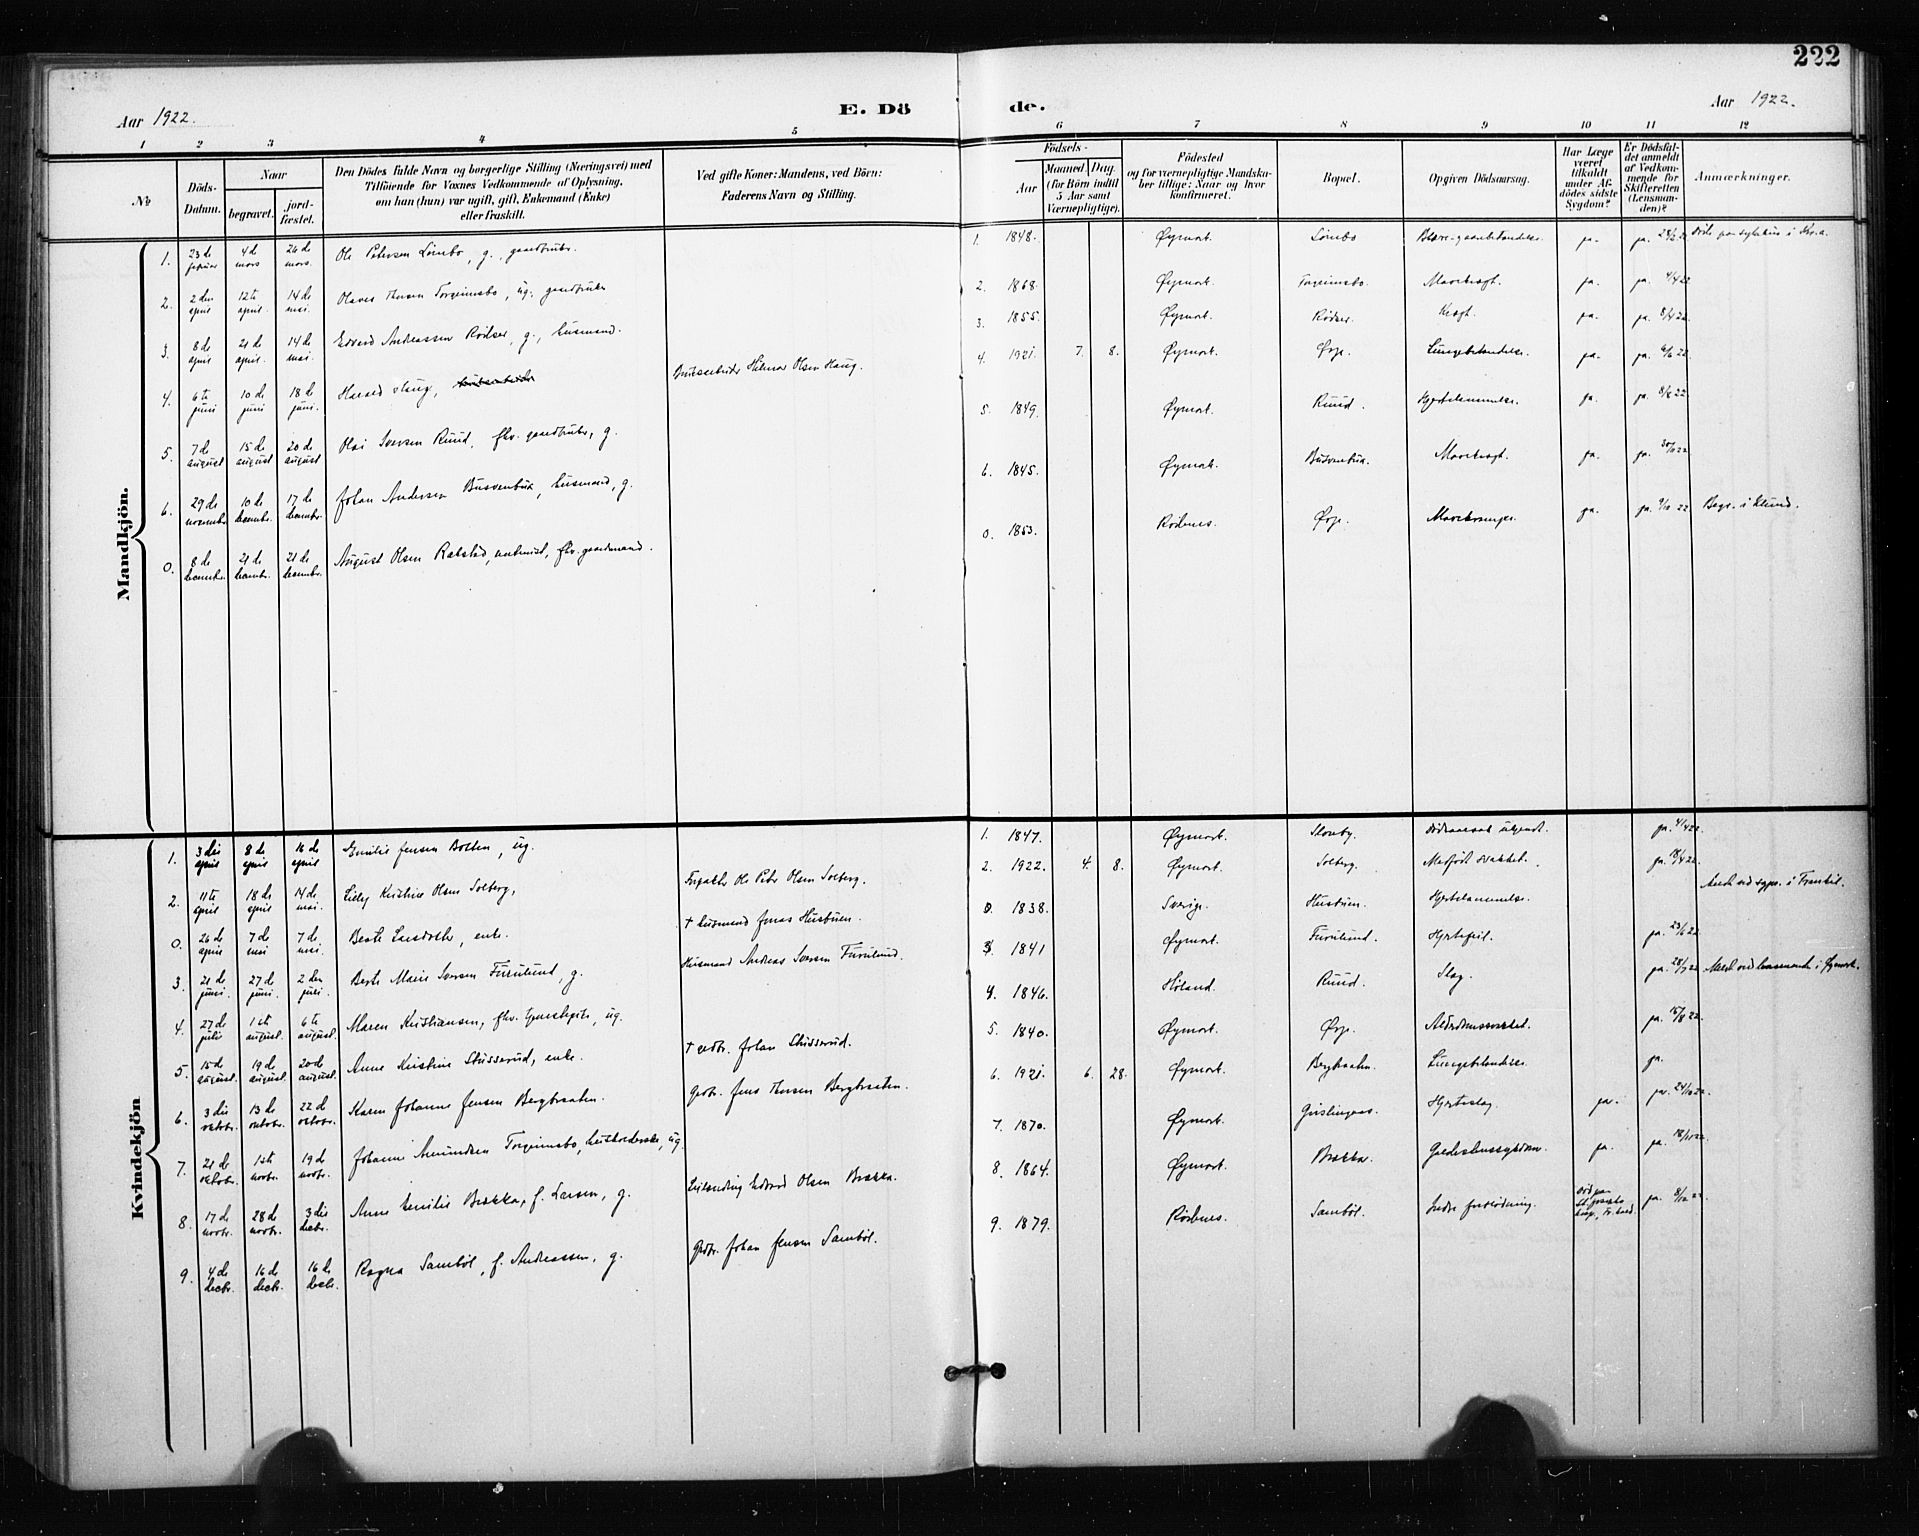 222
Aar 1922.
E. Dö
de.
Aar 1922.
1 2 3 4 5 6 7 8 9 10 11 12
No
Döds-Datum.
Naar
begravet.
jord-fæstet.
Den Dödes fulde Navn og borgerlige Stilling (Næringsvei) med
Tilföiende for Voxnes Vedkommende af Oplysning,
om han (hun) var ugift, gift, Enkemand (Enke)
eller fraskilt.
Ved gifte Koner: Mandens, ved Börn:
Faderens Navn og Stilling.
Födsels-
Aar
Maaned. Dag.
(for Börn indtil
5 Aar samt
Værnepligtige).
Födested
og for værnepligtige Mandska-
ber tillige: Naar og hvor
konfirmeret.
Bopæl.
Opgiven Dödsaarsag.
Har Læge
været
tilkaldt
under Af-
dödes sidste
Sygdom?
Er Dödsfal-
det anmeldt
af Vedkom-
mende for
Skifteretten
(Lensman-
den)?
Anmærkninger.
Mandkjön.
1. 23de februar 4de mars 26de mars. Ole Petersen Lömbo, g., gaardbruker. 1. 1848. Øymark. Lömbo ja. ja. 28/2 22
2. 2den april 12te april. 14de mai. Olaves Torgeimsbo, ug. gaardbruker 2. 1868. Øymark. Torgeimsbo. Mavekræft. ja. ja. 4/4 22
3. 8de april 21de april. 14de mai. Edvard Andreassen Rödser, g., husmand. 3. 1855. Øymark. Rödser. Kræft. ja. ja. 8/4 22.
4. 6te juni 10de juni 18de juni. Harald Haug, Bruksarbeider Hilmar Olsen Haug. 4. 1921. 7. 8. Øymark. Ørje. Lungebetændelse. ja. ja. 6/6 22
5. 7de august 15de august 20de august Olai Iversen Ruud, fhv. gaardbruker, g. 5. 1849. Øymark. Ruud. Hjertelammelse. ja. ja. 8/8 22.
6. 29de november 10de decembr. 17de decembr. Johan Andersen husmand, g. 6. 1845. Øymark. Mavekræft. ja. ja. 30/11 22
0. 8de decembr. 21de decembr. 21de decembr. August Olsen Rakstad, fhv. gaardmand. 0. 1853. Rödenes. Ørje. ja. ja. Begr. i Klund.
Kvindekjön
1. 3die april 8de april 16de april Emilie Jensen ug. 1. 1847. Øymark. Sloreby. Dödsaarsak ukjendt. ja. 4/4 22.
2. 11te april 18de april 14de mai. Lilly Kristine Olsen Solberg, Ole Peter Olsen Solberg. 2. 1922. 4. 8. Øymark. Solberg. Medfödt svakhet. ja. 18/4 22.
0. 26de april 7de mai 7de mai. Berte Larsdatter, enke. † husmand Jonas Husbuen. 0. 1838. Sverige. Husbuen. Hjertelammelse.
3. 21de juni. 27de juni. 2den juli. Berte Marie Iversen Furulund, g. Husmand Andreas Iversen Furulund. 3. 1841 Øymark. Furulund. Hjertefeil. ja. 23/6 22
4. 27de juli 1ste august. 6te august. Maren Kristiansen, fhv. ug. 4. 1846. Höland. Ruud. Slag. ja. 28/7 22 i Øymark.
5. 15de august. 19de august. 20de august. Anne Kristine enke. † grdbr. Johan 5. 1840. Øymark. Ørje. Alderdomssvakhet. ja. 15/8 22
6. 3die oktobr. 13de oktobr. 22de oktobr. Karen Johanne Jensen Bergbraaten. Grdbr. Jens Bergbraaten. 6. 1921. 6. 28. Øymark. Bergbraaten. Lungebetændelse. ja.
7. 21de oktobr. 1ste novbr. 19de novbr. Johanne Amundsen Torgeimsbo, husholderske, ug. 7. 1870. Øymark. Hjerteslag ja. ja. 24/10 22.
8. 17de novbr. 28de novbr. 3die decbr. Anne Emilie Brekka, f. Larsen, g. Edvard Olsen Brekka. 8. 1864. Øymark. Brekka. Galdestenssygdom. ja. ja. 18/11 22.
9. 4de decbr. 16de decbr. 16de decbr. Ragna Samböl, f. Andreassen, g. Grdbr. Johan Jensen Samböl. 9. 1879. Rödenes. Samböl. Indre forblödning. ja. 8/12 22